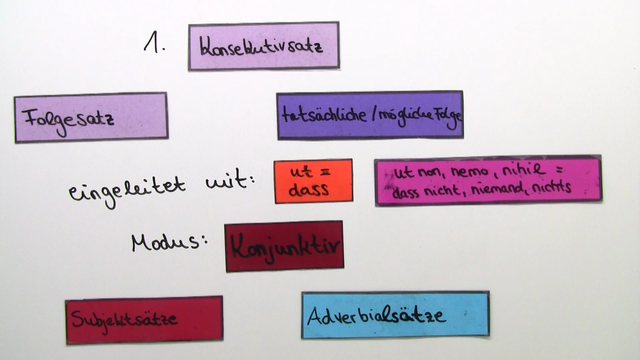 1. Konsekutivsatz
Folgesatz
tatsächliche/mögliche Folge
eingeleitet mit: ut =
dass
ut non, nemo, nihil =
dass nicht, niemand, nichts
Modus: Konjunktiv
Subjektsätze
Adverbialsätze